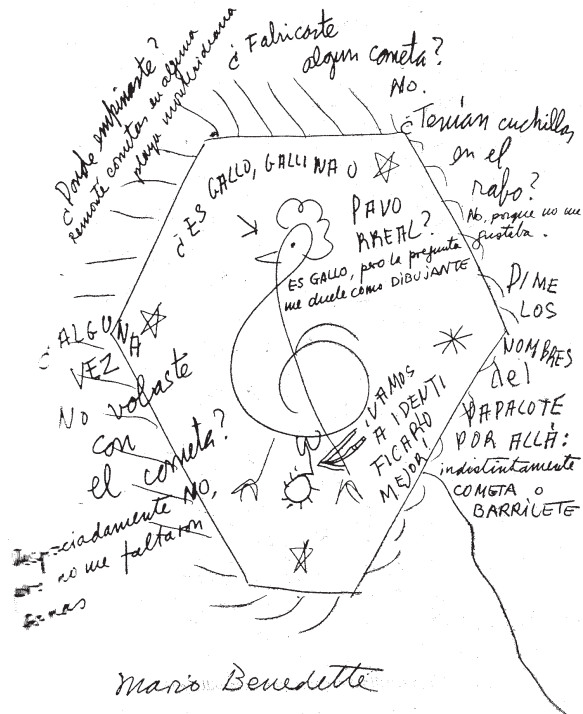 ¿Donde empinaste?
remonté cometas en alguna
playa montevideana
¿Fabricaste
algun cometa?
NO.
¿Tenían cuchillas
en el
rabo?
No, porque no me
gustaba.
¿ES GALLO, GALLINA O
PAVO
RREAL?
ES GALLO, pero la pregunta
me duele como DIBUJANTE
DIME
LOS
NOMBRES
del
PAPALOTE
POR ALLÁ:
indistintamente
COMETA o
BARRILETE
¡VAMOS
A IDENTI
FICARLO
MEJOR!
¿ALGUNA
VEZ
NO volaste
con
el cometa?
NO,
no me faltaron
Mario Benedette